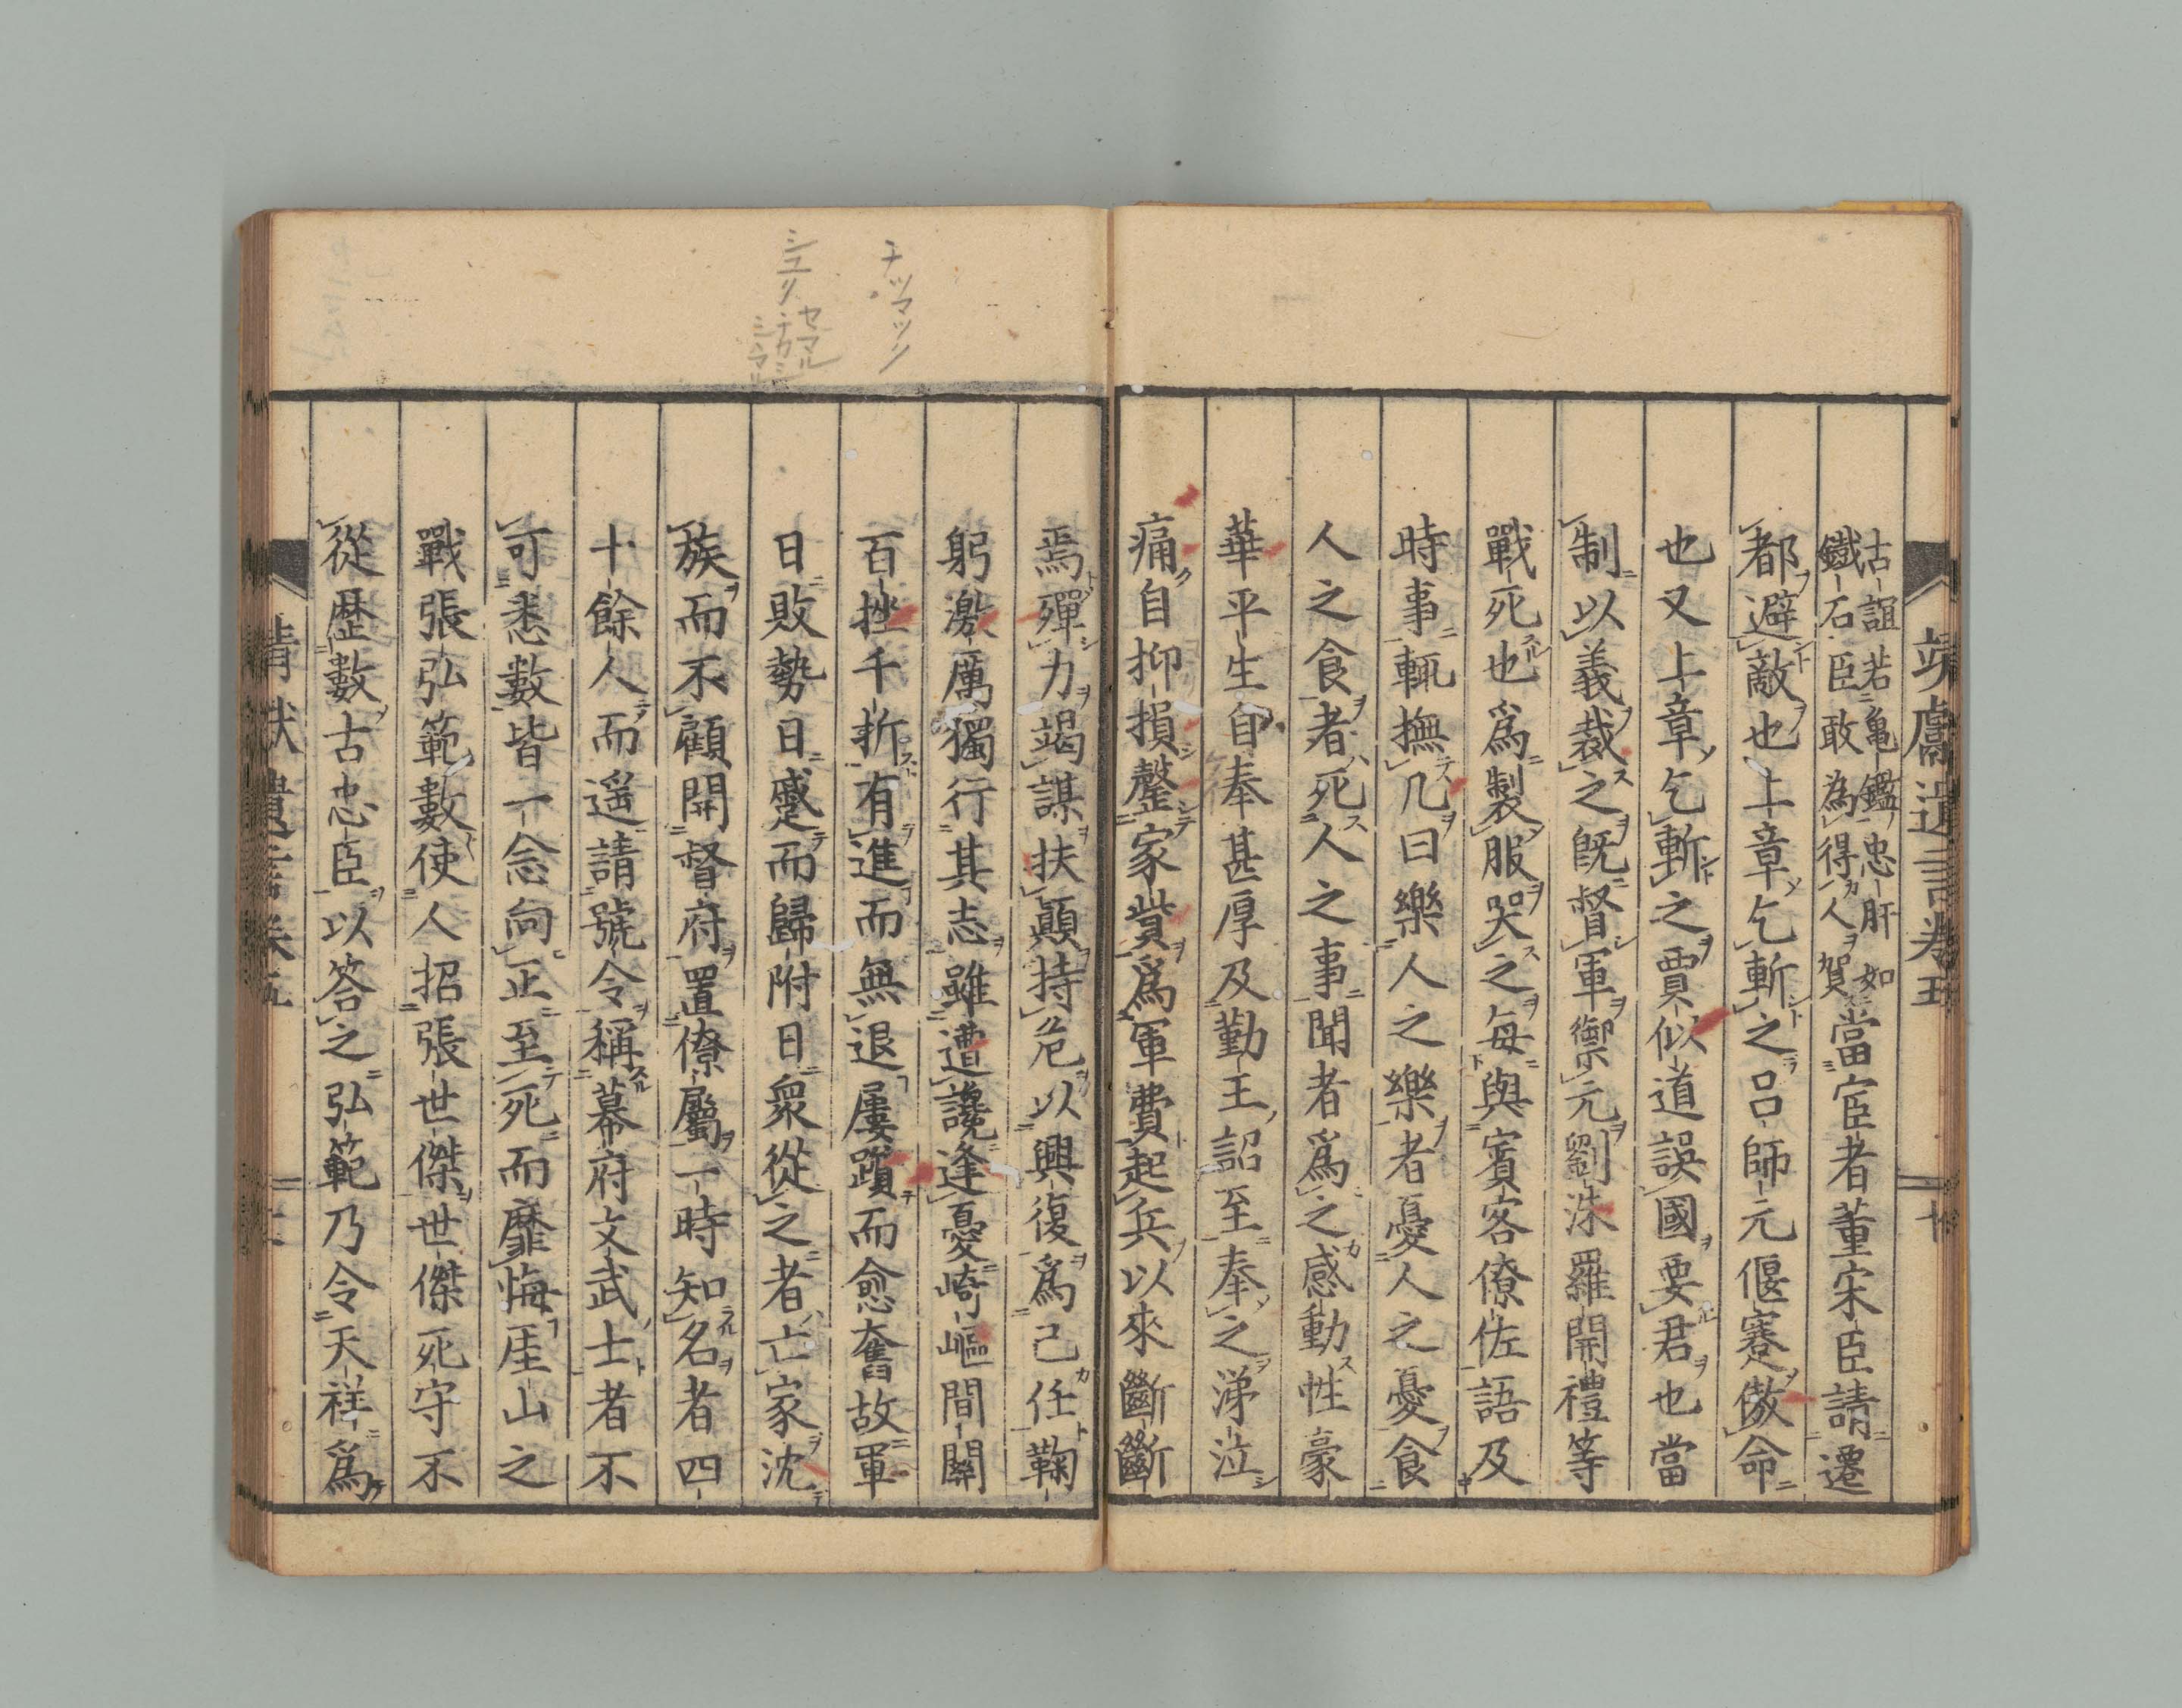 靖獻遺言卷五
十
古誼若亀鑑忠肝如
鐵石臣敢為得人賀
當宦者董宋臣請遷
都避敵也上章乞斬之呂師元偃蹇傲命
也又上章乞斬之賈似道誤國要君也當
制以義裁之既督軍禦元劉洙羅開禮等
戰死也爲製服哭之每與賓客僚佐語及
時事輒撫几曰樂人之樂者憂人之憂食
人之食者死人之事聞者爲之感動性豪
華平生自奉甚厚及勤王詔至奉之涕泣
痛自抑損罄家貲爲軍費起兵以來斷斷
チツマツク
シユク
セマル
チカシ
シヽマル
焉殫力竭謀扶顛持危以興復爲己任鞠
躬激厲獨行其志雖遭讒逢憂崎嶇間關
百挫千折有進而無退屢躓而愈奮故軍
日敗勢日蹙而歸附日衆從之者亡家沈
族而不顧開督府置僚屬一時知名者四
十餘人而遥請號令稱幕府文武士者不
可悉數皆一念向正至死而靡悔厓山之
戰張弘範數使人招張世傑世傑死守不
從歴數古忠臣以答之弘範乃令天祥爲
靖獻遺言卷五